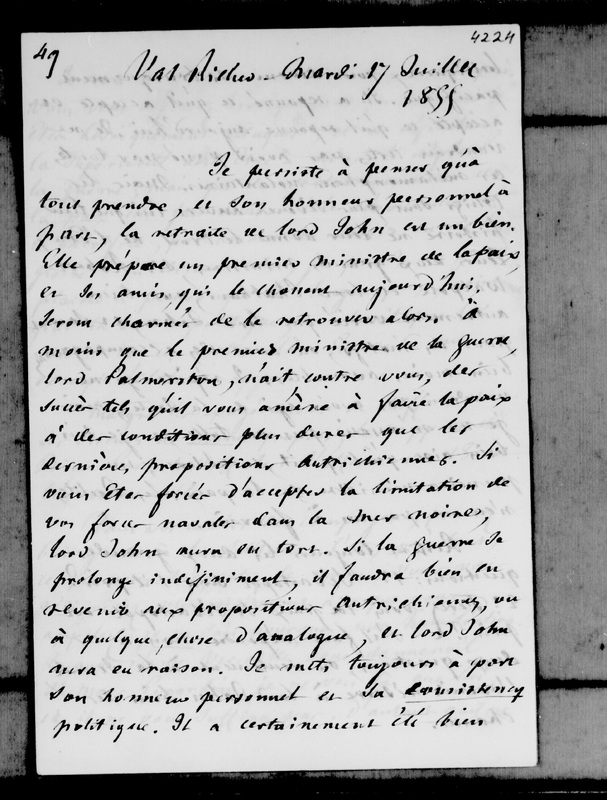 4224
49
Val Richer - Mardi 17 Juillet
1855
Je persiste à penser qu'à
tout prendre, et son honneur personnel à
part, la retraite de lord John est un bien.
Elle prépare un premier ministre de la paix,
et ses amis, qui le chassent aujourd'hui,
seront charmés de le retrouver alors. À
moins que le premier ministre de la guerre,
lord Palmerston, n'ait contre vous, des
succès tels qu'il vous amène à faire la paix
à des conditions plus dures que les
dernières propositions Autrichiennes. Si
vous êtes forcés d'accepter la limitation de
vos forces navales dans la mer noire,
lord John aura eu tort. Si la guerre se
prolonge indéfiniment, il faudra bien en
revenir aux propositions Autrichiennes, ou
à quelque chose d'analogue, et lord John
aura eu raison. Je mets toujours à part
son honneur personnel et sa consistency
politique. Il a certainement été bien